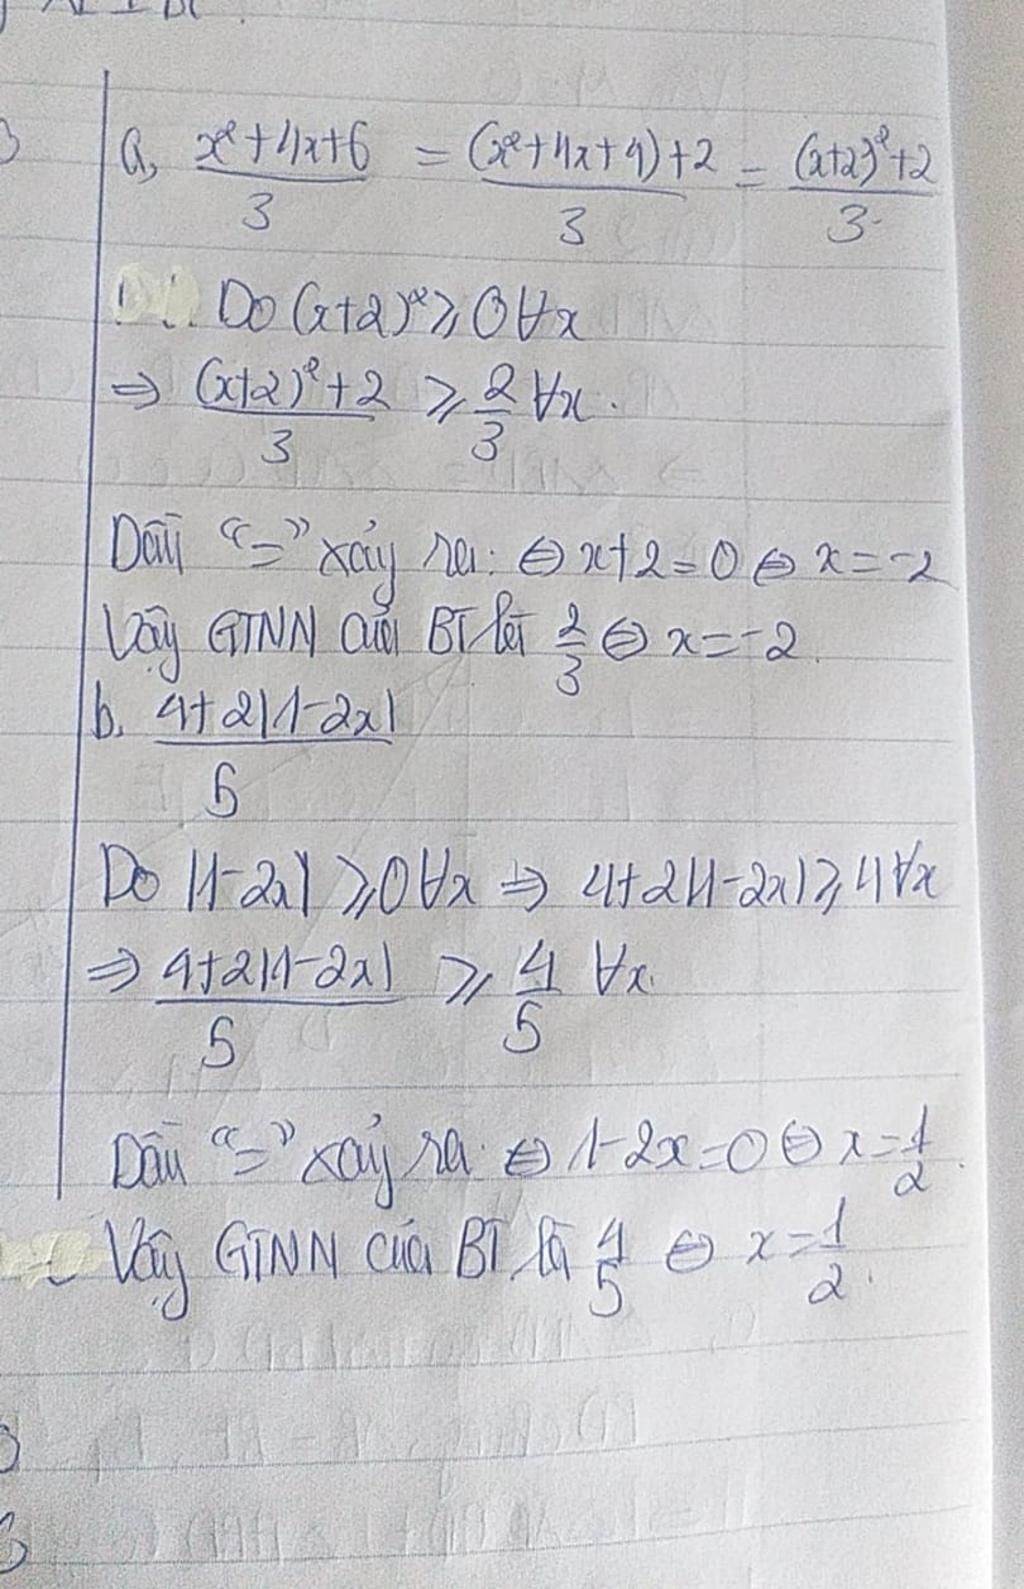 a, x²+4x+6/3 = (x²+4x+4)+2/3 = (x+2)²+2/3
Do (x+2)² ⩾ 0 ∀x
⇒ (x+2)²+2/3 ⩾ 2/3 ∀x.
Dấu “=” xảy ra: ⇔ x+2=0 ⇔ x=-2
Vậy GTNN của BT là 2/3 ⇔ x=-2.
b, 4+2|1-2x|/5
Do |1-2x| ⩾ 0 ∀x ⇒ 4+2|1-2x| ⩾ 4 ∀x
⇒ 4+2|1-2x|/5 ⩾ 4/5 ∀x.
Dấu “=” xảy ra: ⇔ 1-2x=0 ⇔ x=1/2.
Vậy GTNN của BT là 4/5 ⇔ x=1/2.